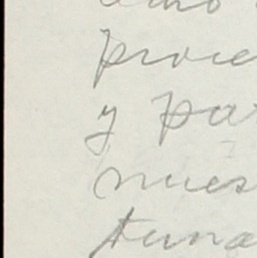 prove
y pa
nues
tuna